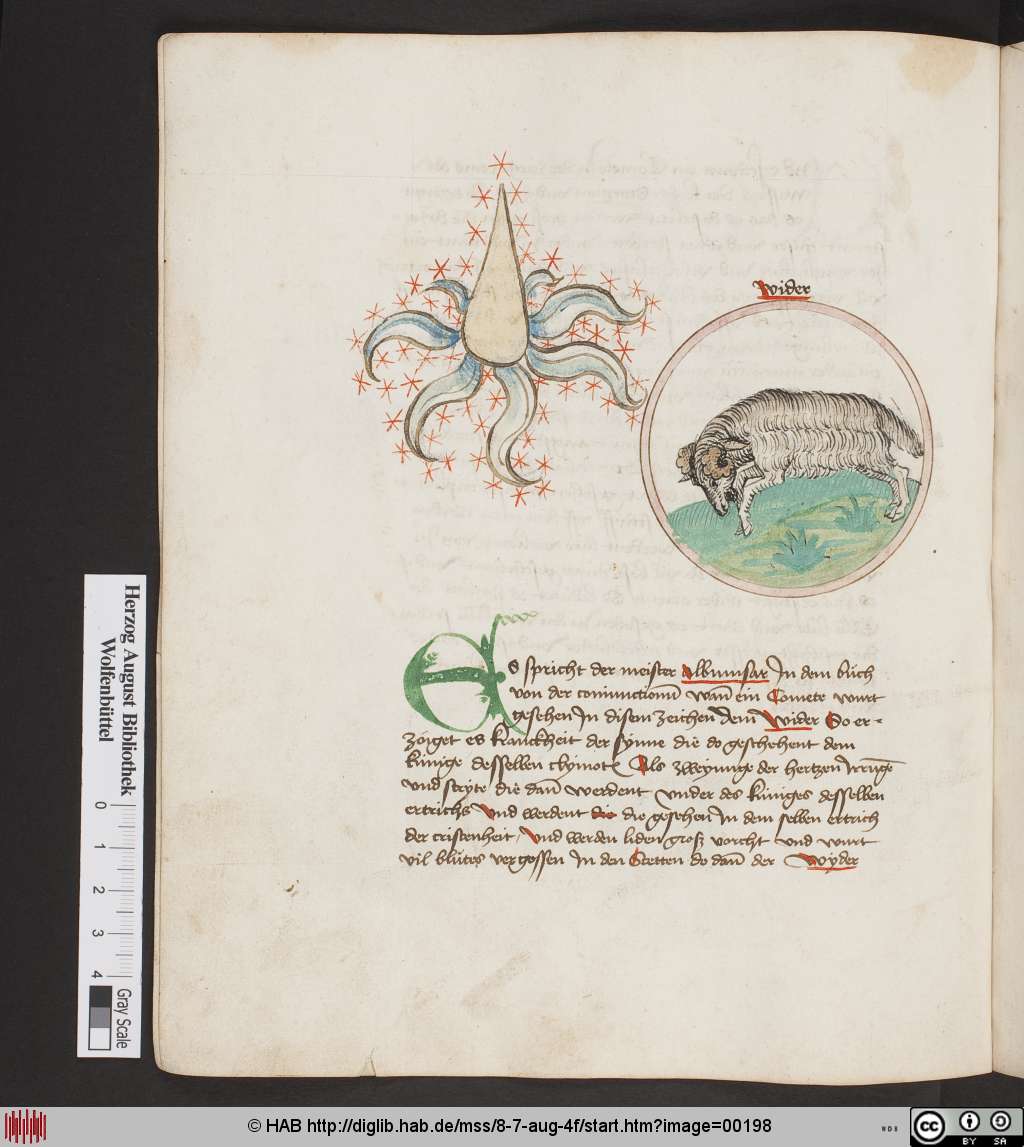 wider
Es spricht der meister Albumsar In dem buch
von der coniunctionn Wan̄ ein Comete wurt
gesehen In disem zeichen dem Wider So er=
zöiget es kranckheit der synne die do geschehent dem
kunige desselben
Also zweyunge der hertzen Irrunḡe
vnd stryte die dan̄ werdent vnder des küniges desselben
ertrichs Vnd werdent die die gesehen In dem selben ertrich
der cristenheit / Vnd werden liden groß vorcht vnd wurt
vil blütes vergossen In den Stetten do dan̄ der Wyder
Herzog August Bibliothek
Wolfenbüttel
0 1 2 3 4
Gray Scale
© HAB http://diglib.hab.de/mss/8-7-aug-4f/start.htm?image=00198
WDB
cc BY SA